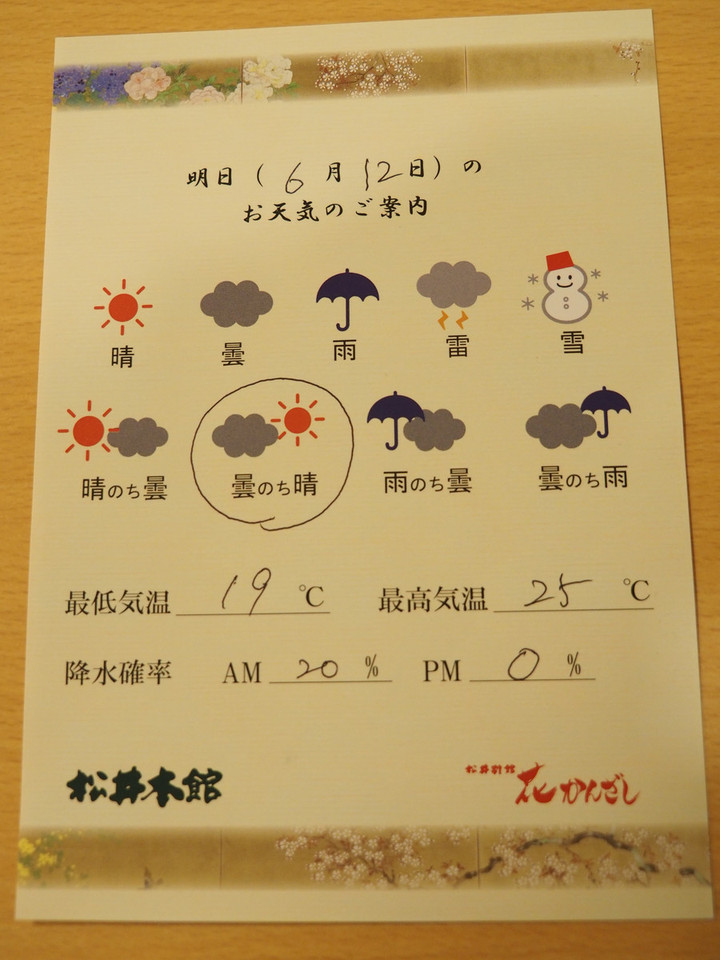 明日（6月12日）の
お天気のご案内
晴 曇 雨 雷 雪
晴のち曇 曇のち晴 雨のち曇 曇のち雨
最低気温 19 ℃ 最高気温 25 ℃
降水確率 AM 20 % PM 0 %
松井本館 松井別館 花かんざし